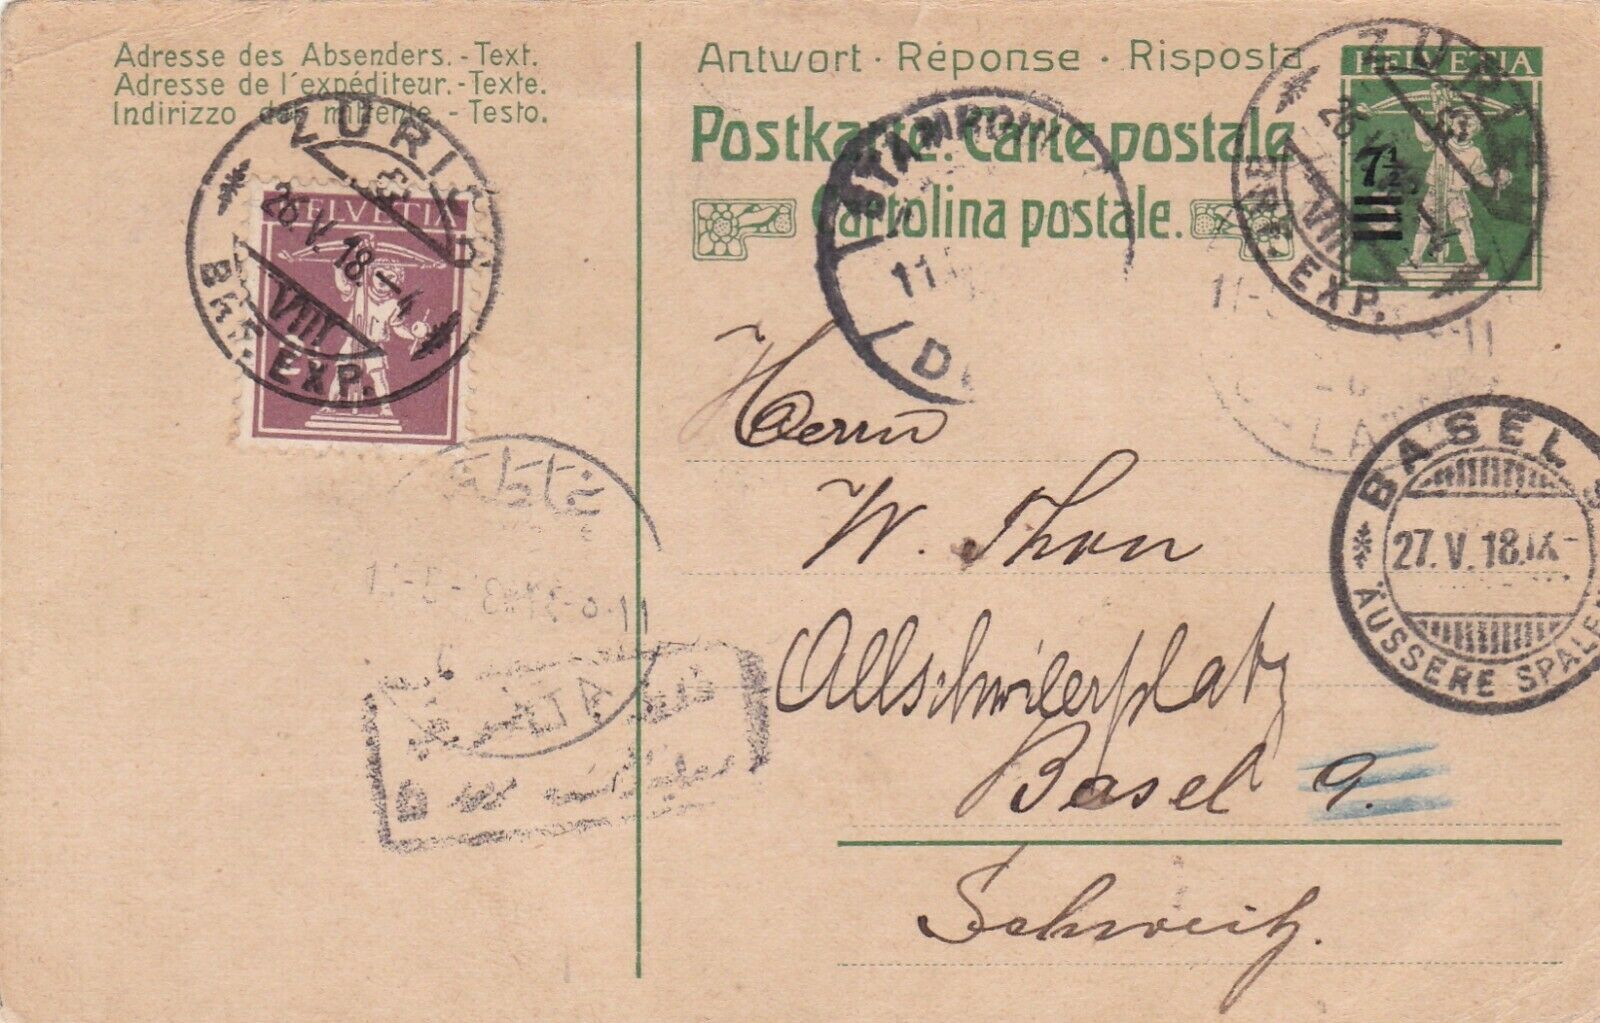 Adresse des Absenders. - Text.
Adresse de l'expéditeur. - Texte.
Indirizzo del mittente - Testo.
Antwort · Réponse · Risposta
Postkarte. Carte postale
Cartolina postale.
HELVETIA
7½
HELVETIA
ZÜRICH
26.V.18.-4
VIII
BRF. EXP.
ZÜRICH
26
VIII
BRF. EXP.
STAMBOUL
11
BASEL
27.V.18.IX-
ÄUSSERE SPALEN
GALATA
Herrn
W. Thon
Allschwilerplatz
Basel 9.
Schweiz.